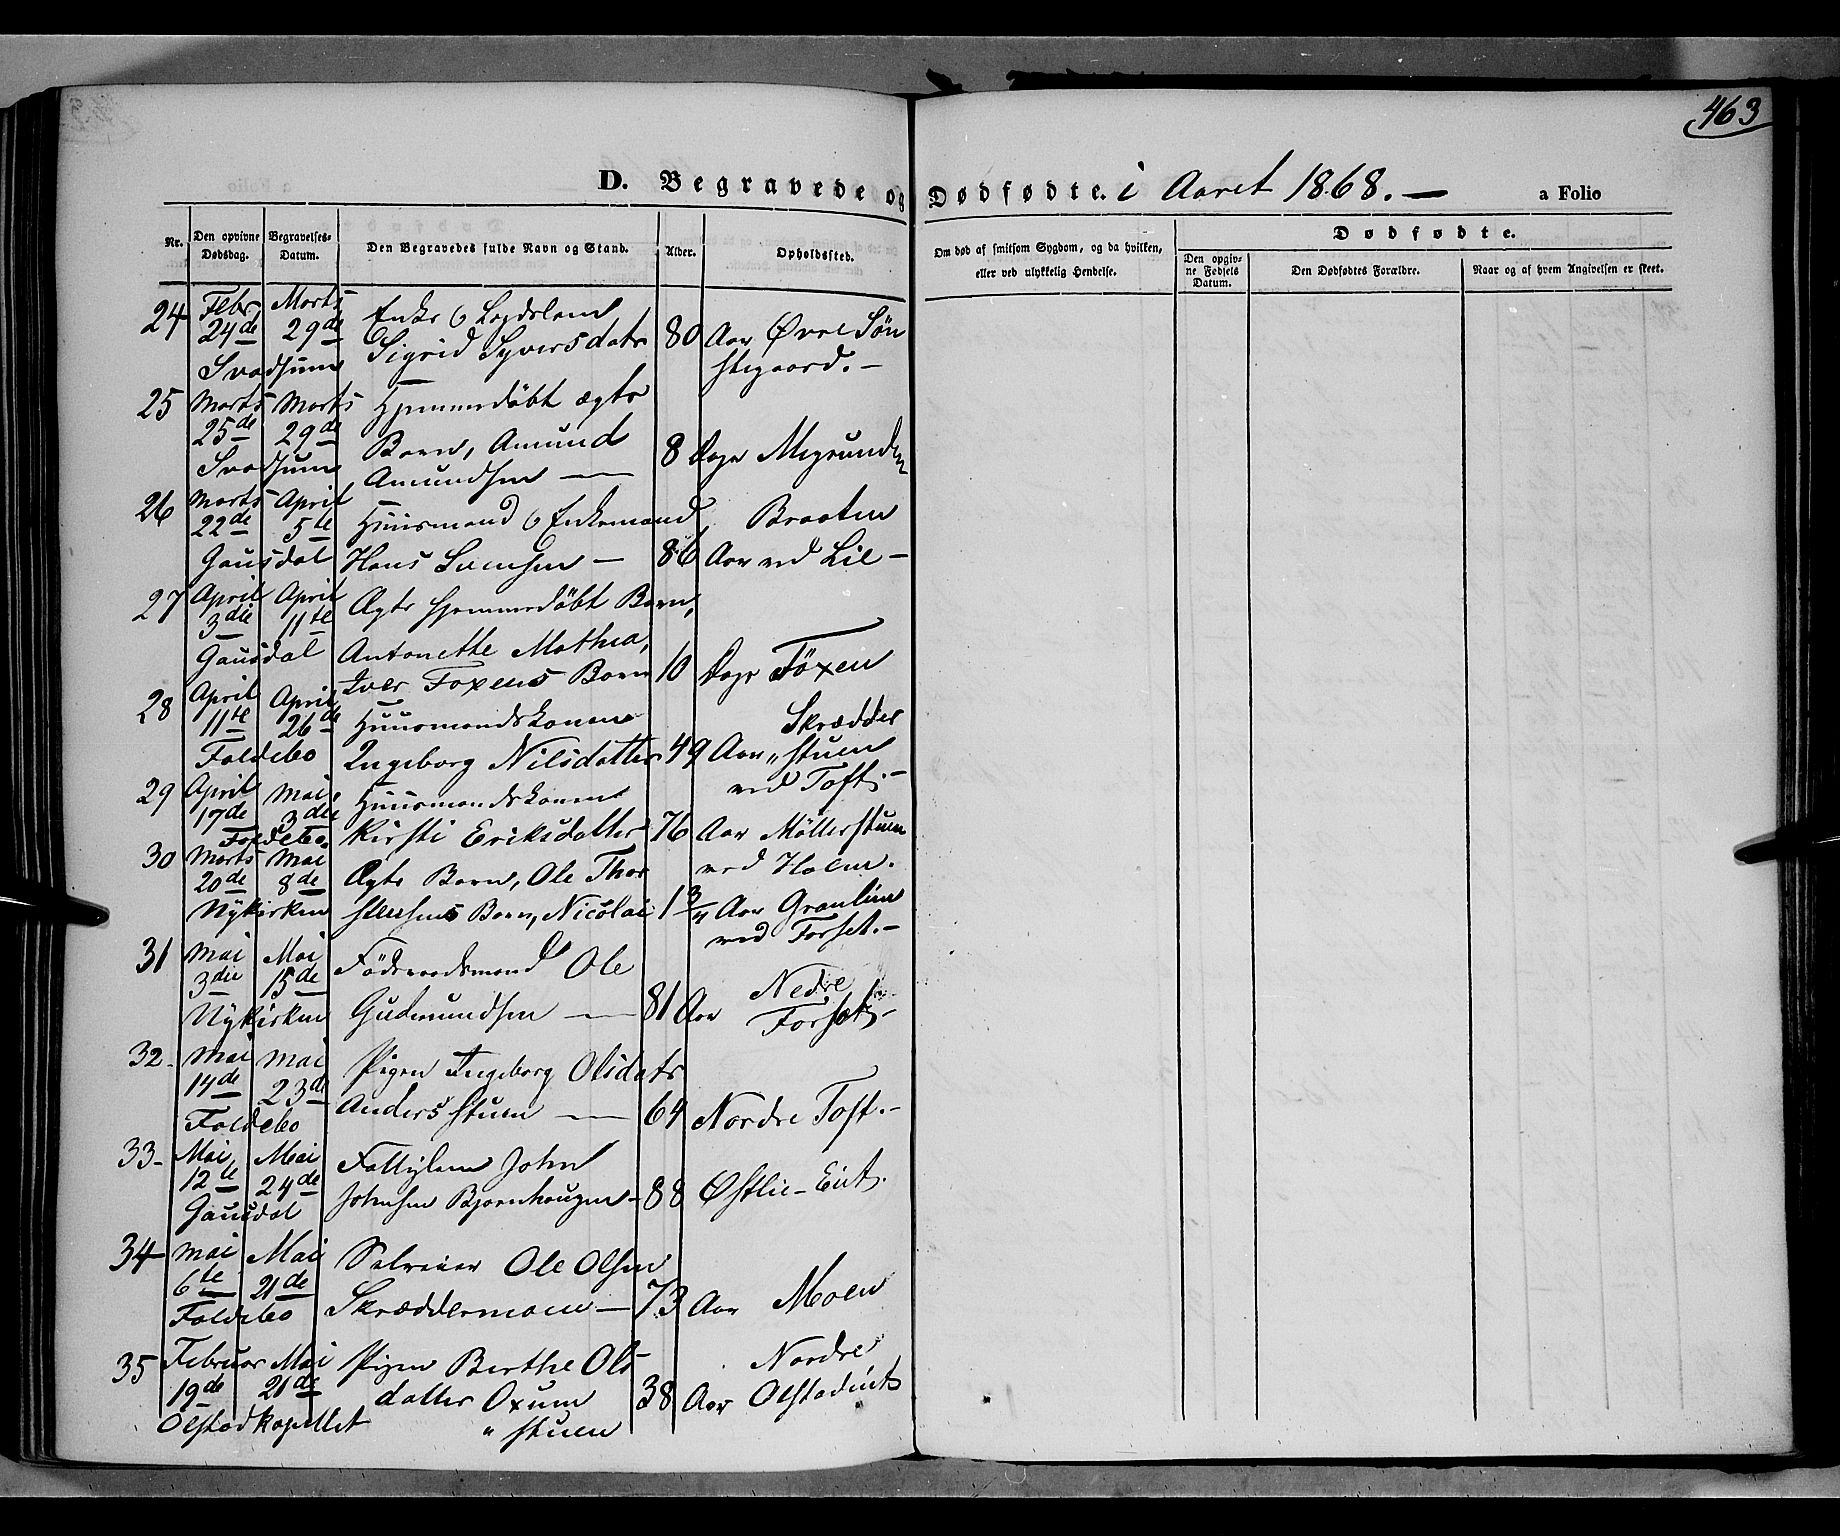 463
D. Begravede og Dødfødte. i Aaret 1868. — a Folio
Nr.
Den opgivne Dødsdag.
Begravelses-Datum.
Den Begravedes fulde Navn og Stand.
Alder.
Opholdssted.
Om død af smitsom Sygdom, og da hvilken, eller ved ulykkelig Hendelse.
Dødfødte.
Den opgivne Fødsels Datum.
Den Dødfødtes Forældre.
Naar og af hvem Angivelsen er skeet.
24 Febr. Morts Enke
24de 29de Sigrid Syversdatr 80 Aar Øvre Søn
Svadsum stegaard. —
25 Morts Morts Hjemmedøbt ægte
25de 29de Barn, Amund
Svadsum Amundsen — 8 Dage Megrunden
26 Morts April Huusmand & Enkemand Braaten
22de 5te
Gausdal Hans Svensen — 86 Aar ved Lie —
27 April April Ægte hjemmedøbt Barn,
3die 11te
Gausdal Antonette Mathea,
Iver Foxens Barn 10 Dage Föxen
28 April April Huusmandskonen Skrædder
11te 26de
Foldebo Ingeborg Nilsdatter 49 Aar „ stuen
ved Toft. —
29 April Mai Huusmandskonen
17de 3die
Foldebo. Kirsti Eriksdatter 76 Aar Møllerstuen
ved Holm.
30 Morts Mai
20de 8de Ægte Barn, Ole Thor
Nykirken stensens Barn, Nicolai 1 3/4 Aar Granlien
ved Forset. —
31 Mai Mai Föderaadsmand Ole
3die 15de Nedre
Nykirken Gudmundsen — 81 Aar Forset. —
32 — Mai Mai Pigen Ingeborg Olsdatr
14de 23de
Foldebo Andersstuen — 64 Nordre Toft. —
33 — Mai Mai Fattiglem John
12te 24de
Gausdal Johnsen Bjørnhougen — 88 Østlie — Eiet.
34 Mai Mai Selveier Ole Olsen
6te 21de
Foldebo Skræddermoen — 73 Aar Moen
35 Februar Mai Pigen Berthe Ols Nordre
19de 21de datter Oxum 38 Aar Olstadeiet
Olstadkapellet „ stuen